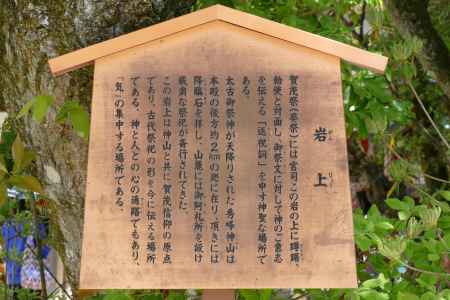 岩上
がんじょう
賀茂祭(葵祭)には宮司この岩の上に蹲踞、
勅使と対面し、御祭文に対して神のご意志
を伝える「返祝詞」を申す神聖な場所で
ある。
太古御祭神が天降りされた秀峰神山は
本殿の後方約2kmの所に在り、頂きには
降臨石を拝し、山麓には御阿礼所を設け
厳粛な祭祀が斎行されてきた。
この岩上は神山と共に賀茂信仰の原点
であり、古代祭祀の形を今に伝える場所
である。神と人との心の通路でもあり、
「気」の集中する場所である。